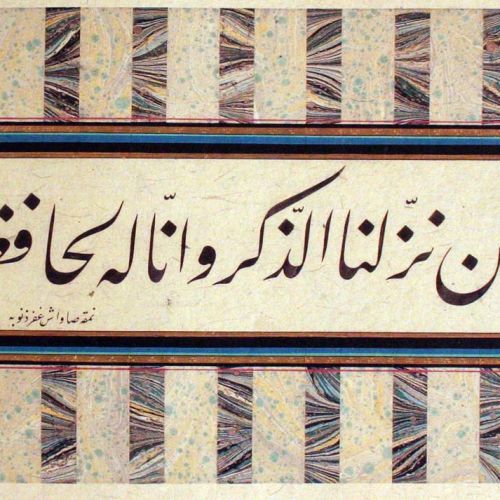 ن نزّلنا الذّكر و انّا له لحافظ
نمقه صاواش غفر ذنوبه